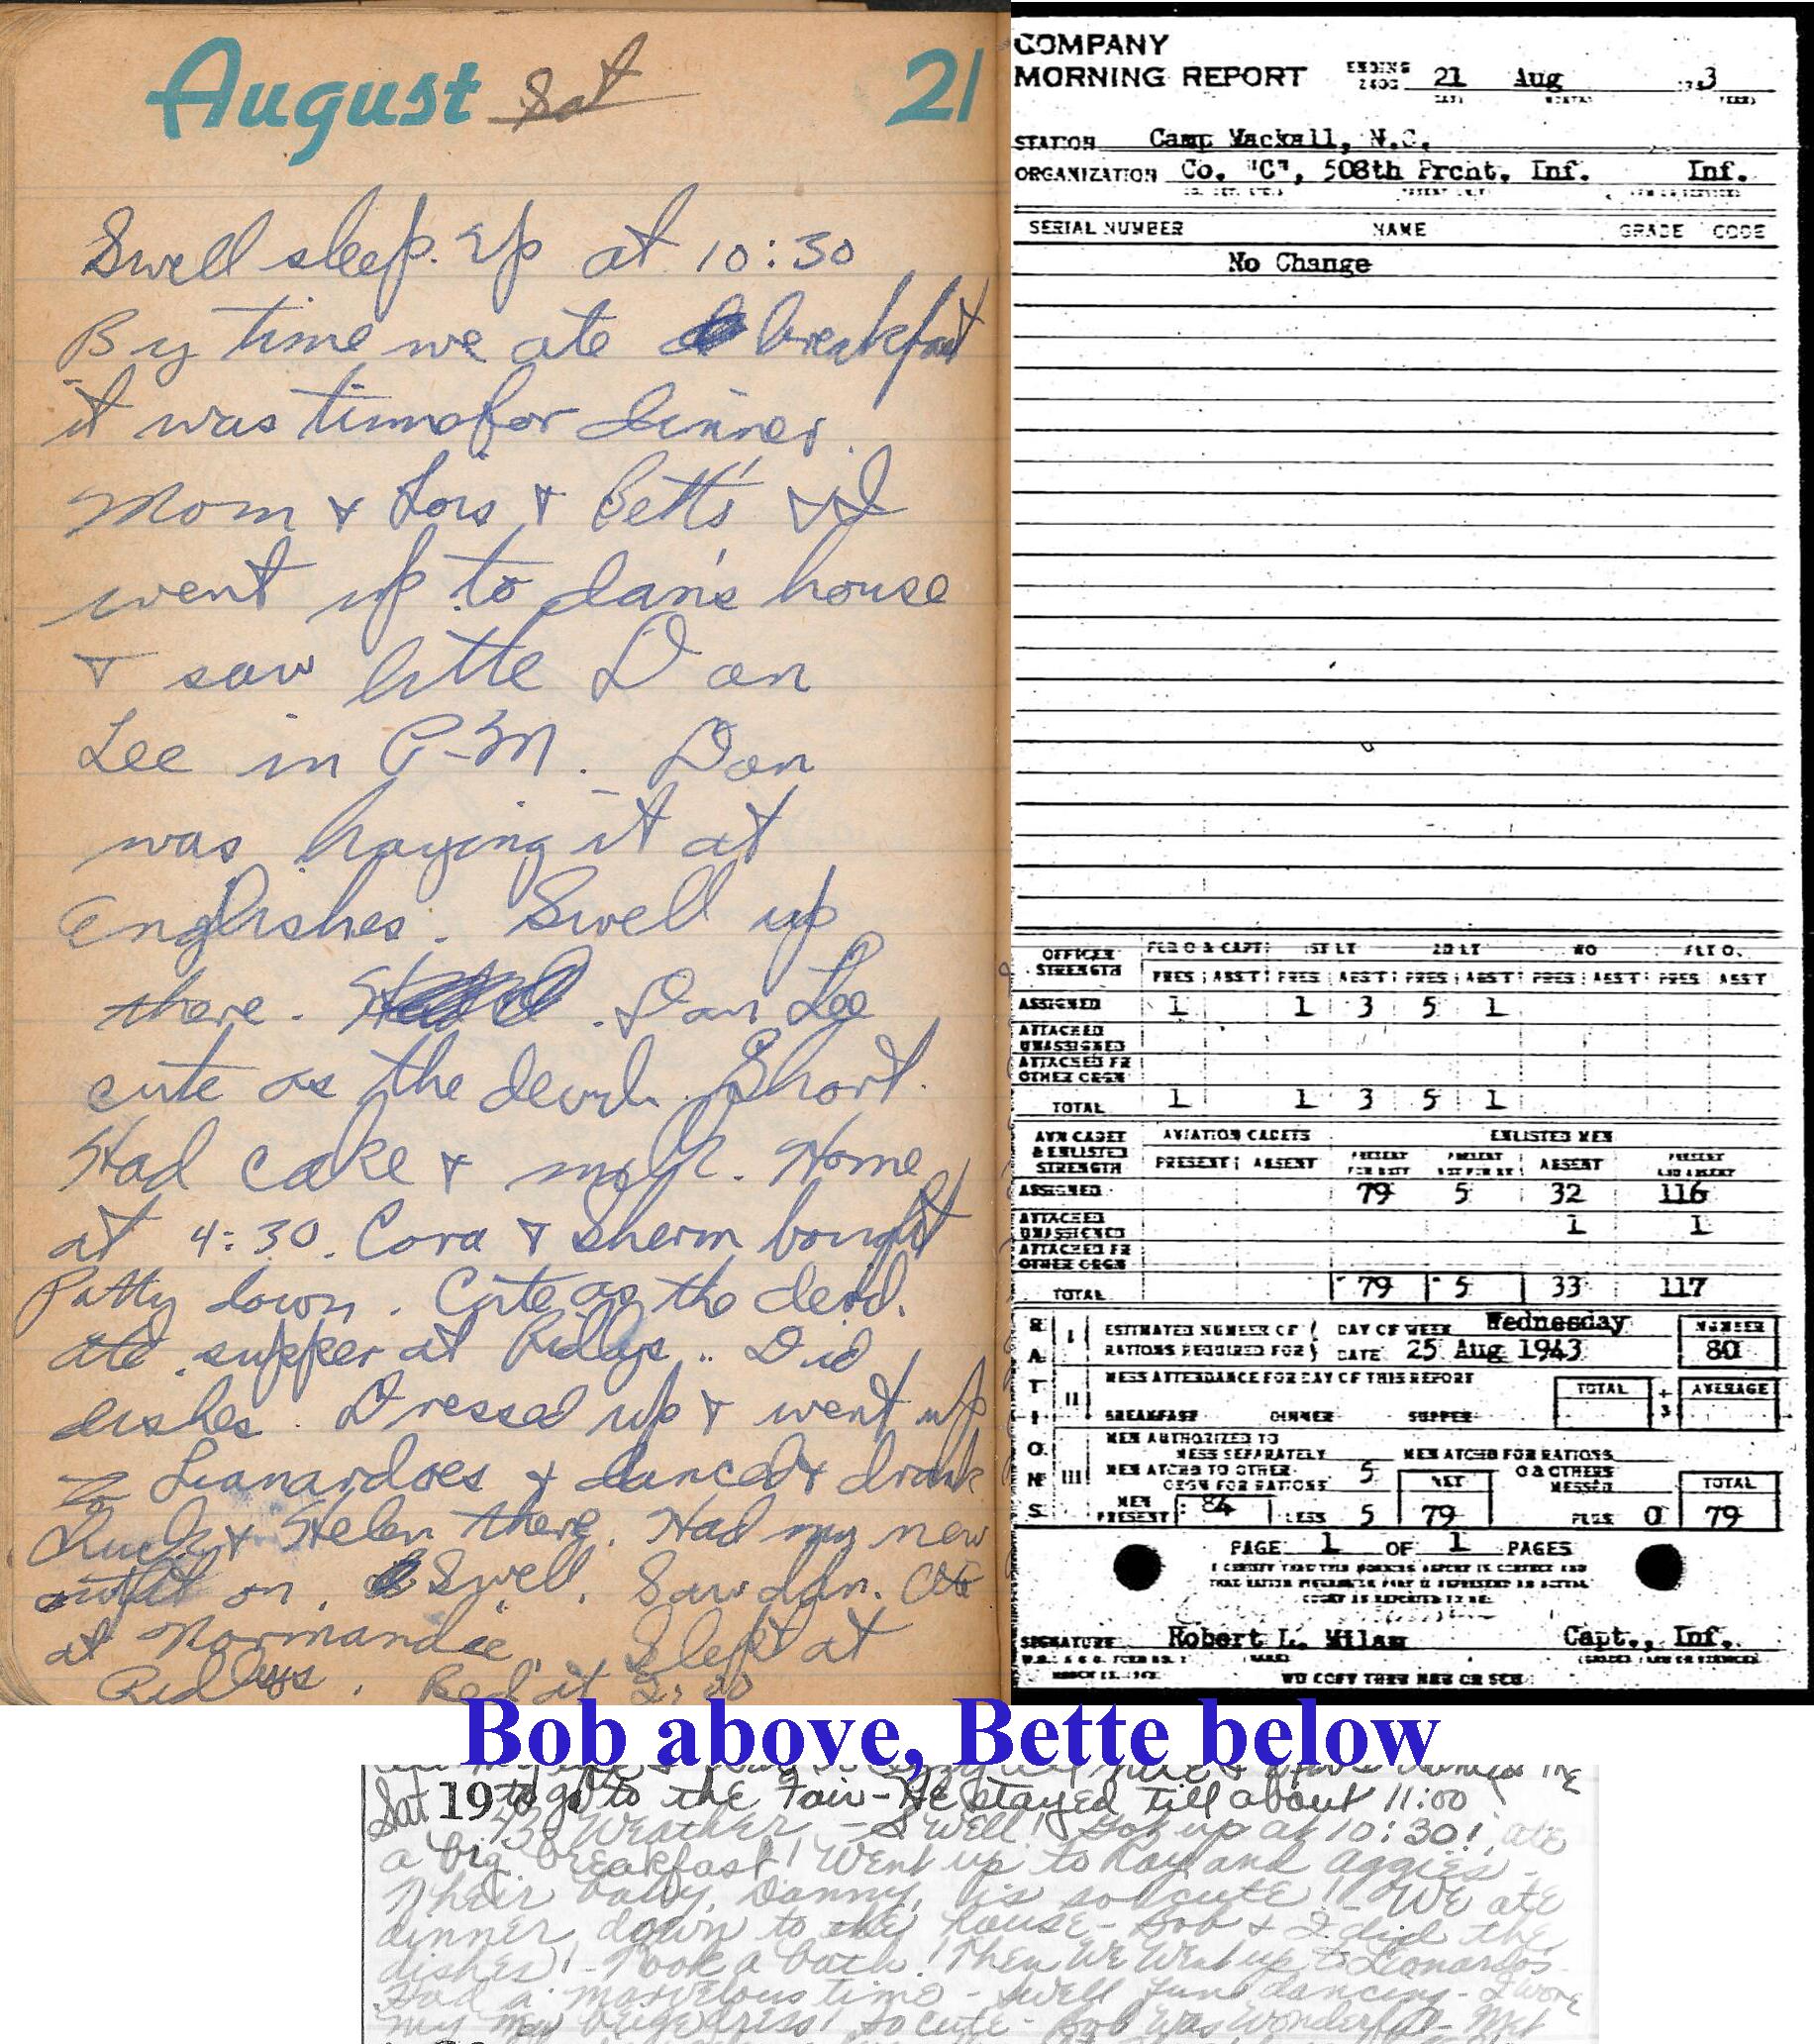 August Sat 21
Swell sleep. Up at 10:30
By time we ate breakfast
it was time for dinner.
Mom & Lois & Betts & I
went up to Dan's house
& saw little Dan
Lee in P-M. Dan
was haying it at
Englishes. Swell up
there. Dan Lee
cute as the devil. Short.
Had cake & milk. Home
at 4:30. Cora & Sherm bought
Patty down. Cute as the devil.
ate supper at Ridleys. Did
dishes. Dressed up & went up
to Leonardoes & danced & drank
& Helen there. Had my new
outfit on. Swell. Saw dan. Ate
at Normandie. Slept at
Bed at
COMPANY
MORNING REPORT ENDING 2400 21 Aug 3
DAY MONTH YEAR
STATION Camp Mackall, N.C.
ORGANIZATION Co. "C", 508th Prcht. Inf. Inf.
SERIAL NUMBER NAME GRADE CODE
No Change
OFFICER STRENGTH FLD O & CAPT 1ST LT 2D LT WO FLT O.
PRES ABST PRES ABST PRES ABST PRES ABST PRES ABST
ASSIGNED 1 1 3 5 1
ATTACHED UNASSIGNED
ATTACHED FR OTHER ORGN
TOTAL 1 1 3 5 1
AVN CADET & ENLISTED STRENGTH AVIATION CADETS ENLISTED MEN
PRESENT ABSENT PRESENT FOR DUTY PRESENT NOT FOR DY ABSENT PRESENT AND ABSENT
ASSIGNED 79 5 32 116
ATTACHED UNASSIGNED 1 1
ATTACHED FR OTHER ORGN
TOTAL 79 5 33 117
RATIONS
I ESTIMATED NUMBER OF RATIONS REQUIRED FOR DAY OF WEEK Wednesday NUMBER
DATE 25 Aug 1943 80
II MESS ATTENDANCE FOR DAY OF THIS REPORT TOTAL ÷ 3 AVERAGE
BREAKFAST DINNER SUPPER
III MEN AUTHORIZED TO MESS SEPARATELY MEN ATCHD FOR RATIONS
MEN ATCHD TO OTHER ORGN FOR RATIONS 5 NET O & OTHERS MESSED TOTAL
MEN PRESENT 84 LESS 5 79 PLUS 0 79
PAGE 1 OF 1 PAGES
I CERTIFY THAT THIS MORNING REPORT IS CORRECT AND
SIGNATURE Robert L. Milam Capt., Inf.
Bob above, Bette below
to go to the Fair - He stayed till about 11:00
Sat 19 43 Weather - Swell! Got up at 10:30! ate
a big breakfast! Went up to Ray and Aggies -
Their baby, Danny, is so cute!! - We ate
dinner down to the house - Bob & I did the
dishes! - Took a bath! Then We Went up to Leonardos
Had a marvelous time - Swell fun dancing - I wore
my new beige dress! So cute - Bob was wonderful - Met